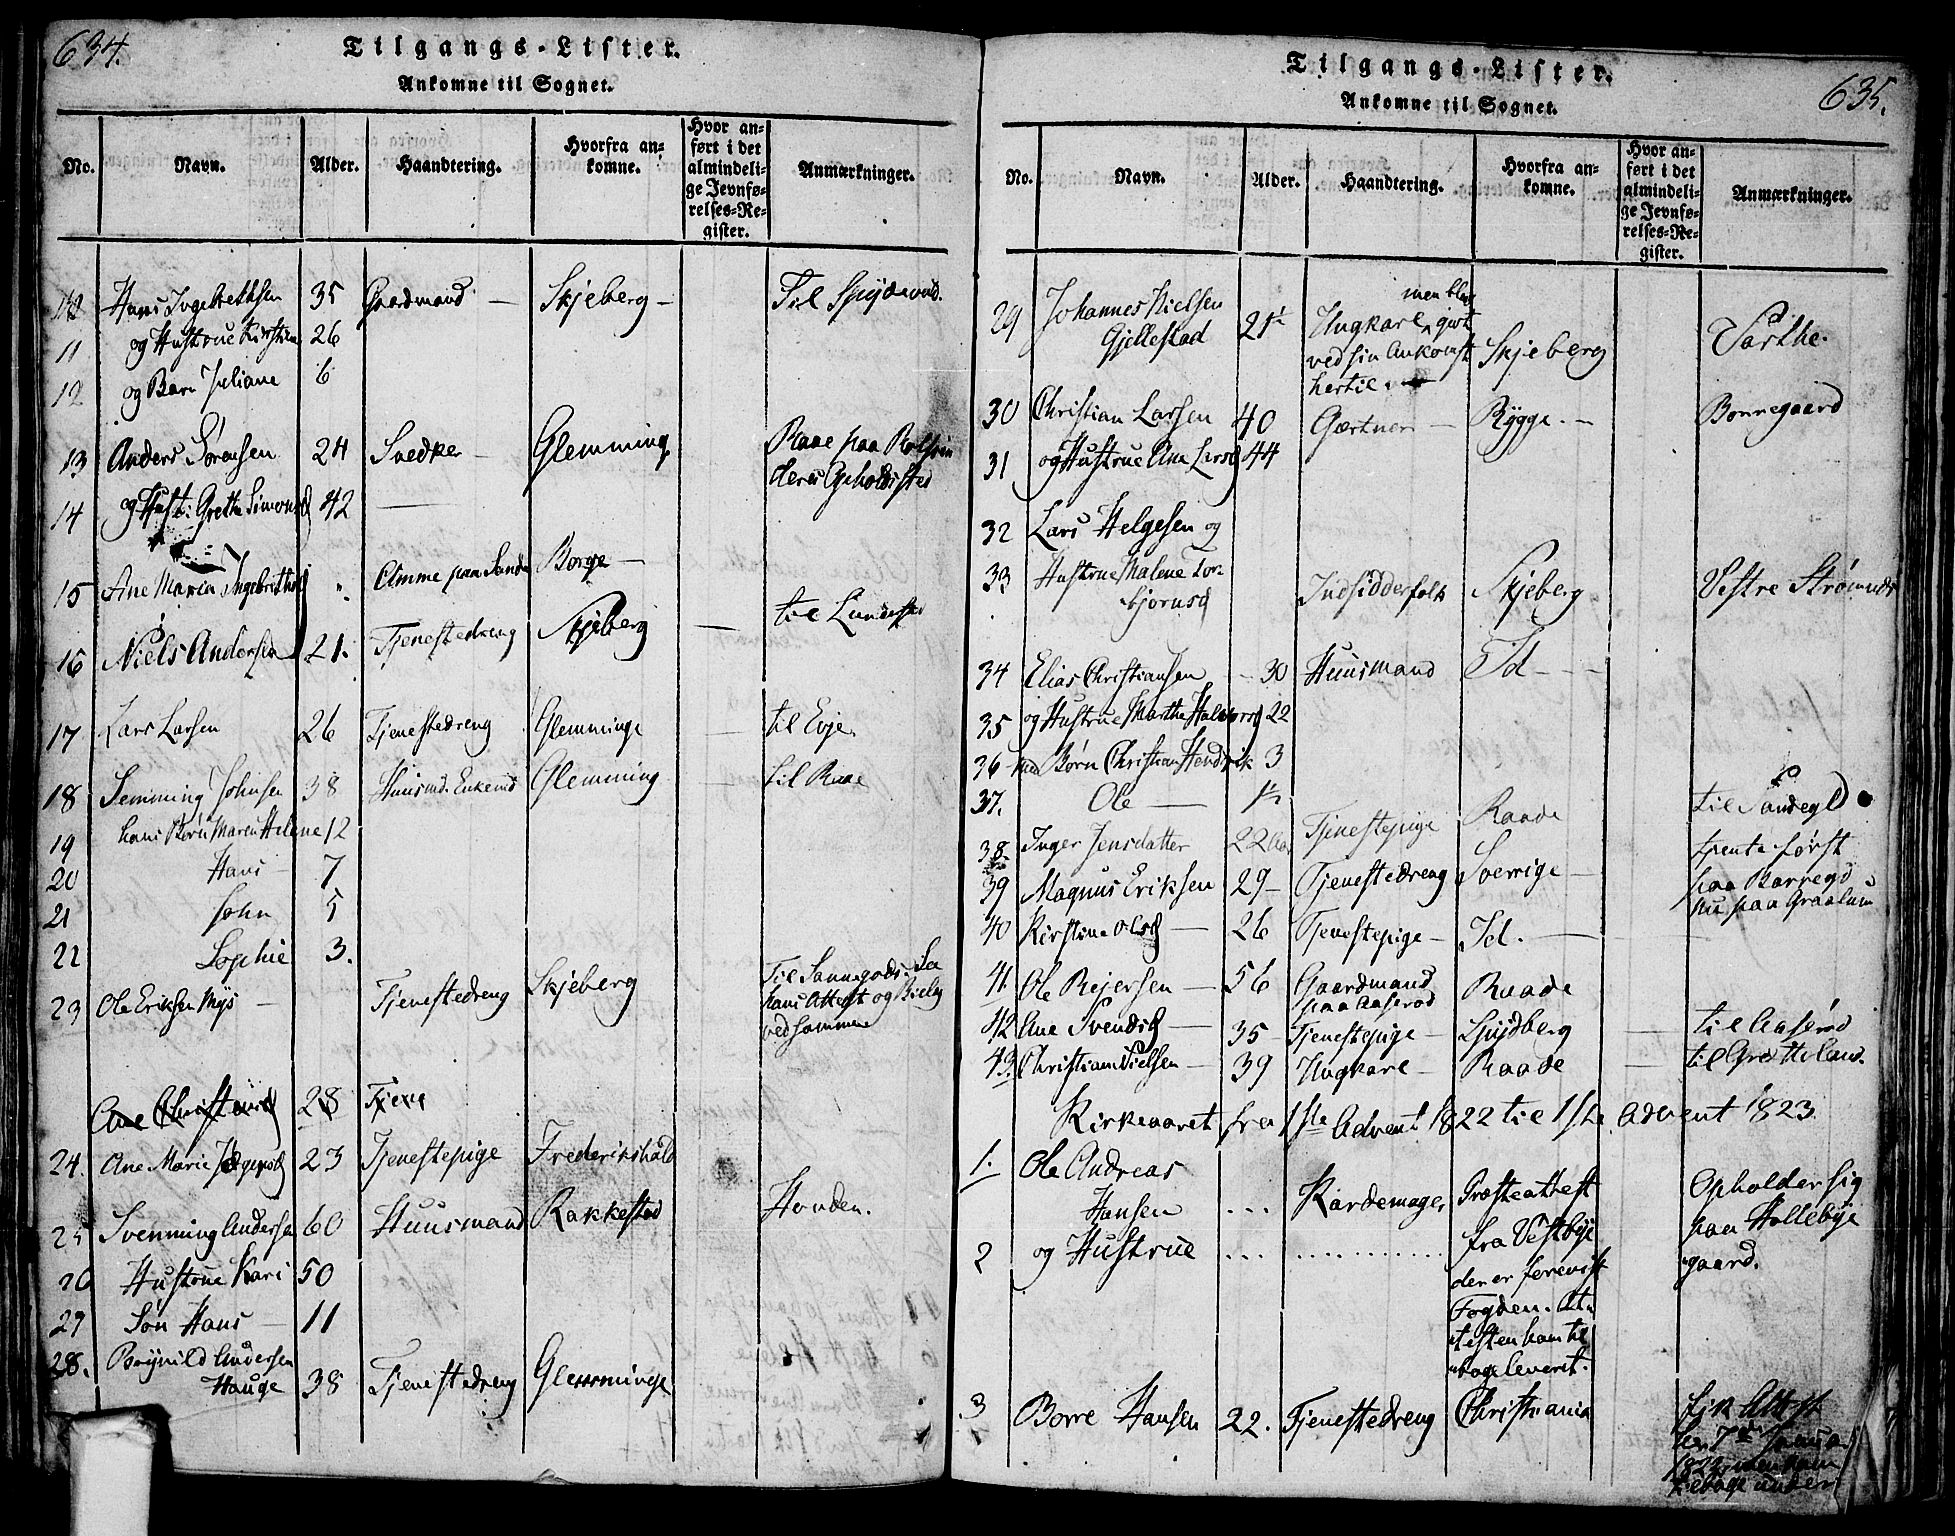 634.
Tilgangs-Lister.
Ankomne til Sognet.
No. Navn. Alder. Haandtering. Hvorfra ankomne. Hvor anført i det almindelige Jevnførelses-Register. Anmærkninger.
10 Hans Ingebrethsen 35 Gaardmand — Skjeberg — Til
11 og Hustrue Kirstine 26
12 og Barn Juliane 6
13 Anders Sørensen 24 Snedker — Glemming Raae paa
14 og Hust: Grethe Simonsd 42 —
15 Ane Maria Ingebrethsd " Amme paa Sande Borge —
16 Niels Andersen 21. Tjenestedreng Skjeberg — til
17 Lars Larsen 26 Tjenestedreng Glemminge — til Evje
18 Semming Johnsen 38 Huusmd. Enkemd Glemming — til Raae
19 hans Børn Maren Helene 12
20 Hans — 7
21 John 5
22 Sophie 3.
23 Ole Eriksen Mys — Tjenestedreng Skjeberg Til
hans Attest og
ved sammen
Ane 28 Tjene
24. Ane Marie 23 Tjenestepige Frederikshald
25 Svenning Andersen 60 Huusmand Rakkestad Honden.
26 Hustrue Kari 50
27 Søn Hans — 11
28. Brynild Andersen
Hauge 38 Tjenestedreng Glemminge
635.
Tilgangs-Lister.
Ankomne til Sognet.
No. Navn. Alder. Haandtering. Hvorfra ankomne. Hvor anført i det almindelige Jevnførelses-Register. Anmærkninger.
29 Johannes Nielsen
Gjellestad 21 Ungkarl men blev givt
ved sin Ankomst
hertil. Skjeberg Tarthe.
30 Christian Larsen 40 Gartner — Rygge. — Borregaard
31 og Hustrue Ane Larsd 44
32 Lars Helgesen og
33 Hustrue Malene Tor-
bjørnsd Indsidderfolk Skjeberg Vestre
34 Elias Christiansen — 30 Huusmand Id —
35 og Hustrue Marthe Halvorsd 22
36 Børn Christian Hendrik 3
37. Ole — 1½
38. Inger Jensdatter 22 Aar Tjenestepige Raade til Sandegd
39 Magnus Eriksen 29 — Tjenestedreng Sverrige — tjente først
paa Borregd
nu paa Graalum
40 Kirstine Olsd — 26 Tjenestepige — Id. —
41. Ole Rejersen — 56 Gaardmand
paa Aaserød Raade
42 Ane Svendsd — 35 Tjenestepige — Spydberg — til Aaserød
43. Christian Nielsen — 39 Ungkarl — Raade — til
Kirkeaaret fra 1ste Advent 1822 til 1ste Advent 1823
1. Ole Andreas
Hansen ... Kardemager Præsteattest Opholder sig
2 og Hustrue ... fra Vestbye paa Hollebye
der er foreviist gaard.
Fogden. At-
testen ham til
bage leveret.
3 Borre Hansen 22. Tjenestedreng Christiania fik Attest
den 7de Januar
tilbage under